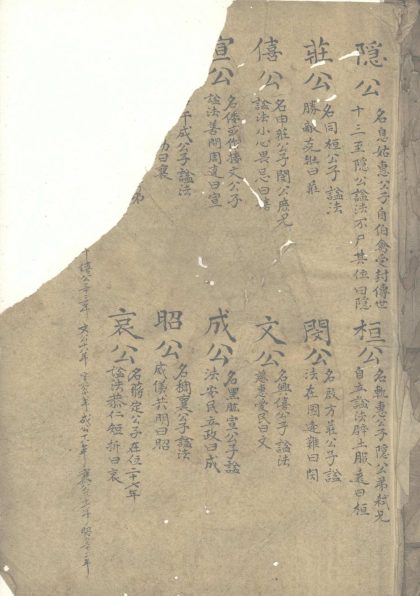 隐公
名息姑惠公子自伯禽受封傳世
十三至隐公謚法不尸其位曰隱
桓公
名軌惠公子隱公弟弑兄
自立謚法辟土服遠曰桓
莊公
名同桓公子謚法
勝敵克壯曰莊
閔公
名啟方莊公子謚
法在國逢難曰閔
僖公
名申莊公子閔公庶兄
謚法小心畏忌曰僖
文公
名興僖公子謚法
慈惠愛民曰文
宣公
名倭或作接文公子
謚法善問周達曰宣
成公
名黑肱宣公子謚
法安民立政曰成
午成公子謚法
功曰襄
昭公
名裯襄公子謚法
威儀共明曰昭
弟
哀公
名蔣定公子在位二十七年
謚法恭仁短折曰哀
僖公三十三年 文公十八年 宣公十八年 成公十八年 襄公三十一年 昭公三十二年